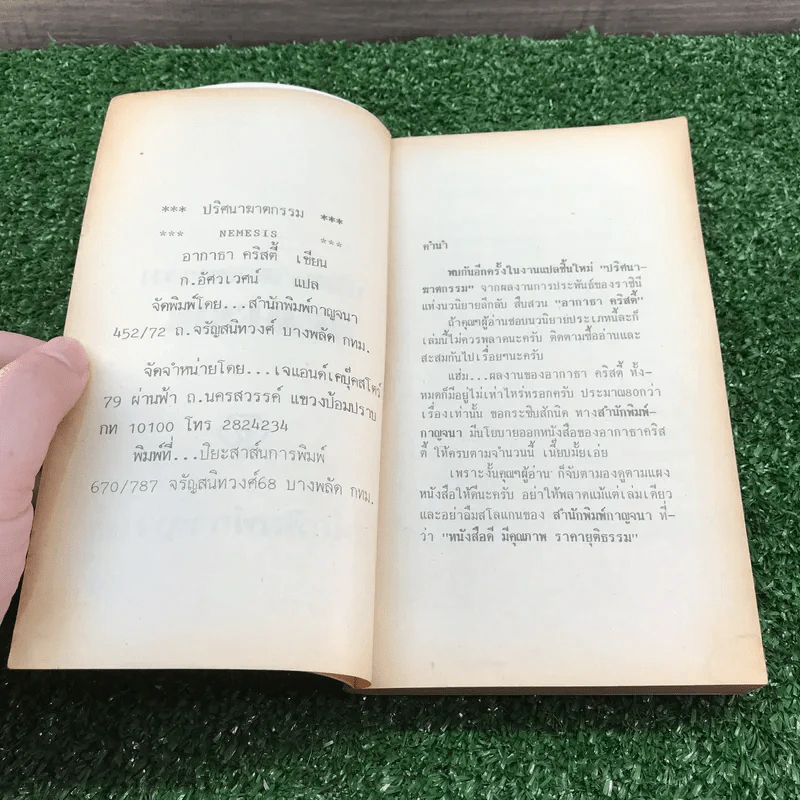 *** ปริศนาฆาตกรรม ***
*** NEMESIS ***
อากาธา คริสตี้ เขียน
ก.อัศวเวศน์ แปล
จัดพิมพ์โดย...สำนักพิมพ์กาญจนา
452/72 ถ.จรัญสนิทวงศ์ บางพลัด กทม.
จัดจำหน่ายโดย...เจแอนด์เคบุ๊คสโตร์
79 ผ่านฟ้า ถ.นครสวรรค์ แขวงป้อมปราบ
กท 10100 โทร 2824234
พิมพ์ที่...ปิยะสาส์นการพิมพ์
670/787 จรัญสนิทวงศ์68 บางพลัด กทม.
คำนำ
พบกันอีกครั้งในงานแปลชิ้นใหม่ "ปริศนา-
ฆาตกรรม" จากผลงานการประพันธ์ของราชินี
แห่งนวนิยายลึกลับ สืบสวน "อากาธา คริสตี้"
ถ้าคุณๆผู้อ่านชอบนวนิยายประเภทนี้ละก็
เล่มนี้ไม่ควรพลาดนะครับ ติดตามซื้ออ่านและ
สะสมกันไปเรื่อยๆนะครับ
แฮ่ม...ผลงานของอากาธา คริสตี้ ทั้ง-
หมดก็มีอยู่ไม่เท่าไหร่หรอกครับ ประมาณ80กว่า
เรื่องเท่านั้น ขอกระซิบสักนิด ทางสำนักพิมพ์-
กาญจนา มีนโยบายออกหนังสือของอากาธาคริส-
ตี้ ให้ครบตามจำนวนนี้ เนี๊ยบมั้ยเอ่ย
เพราะงั้นคุณๆผู้อ่าน ก็จับตามองดูตามแผง
หนังสือให้ดีนะครับ อย่าให้พลาดแม้แต่เล่มเดียว
และอย่าลืมสโลแกนของ สำนักพิมพ์กาญจนา ที่-
ว่า "หนังสือดี มีคุณภาพ ราคายุติธรรม"